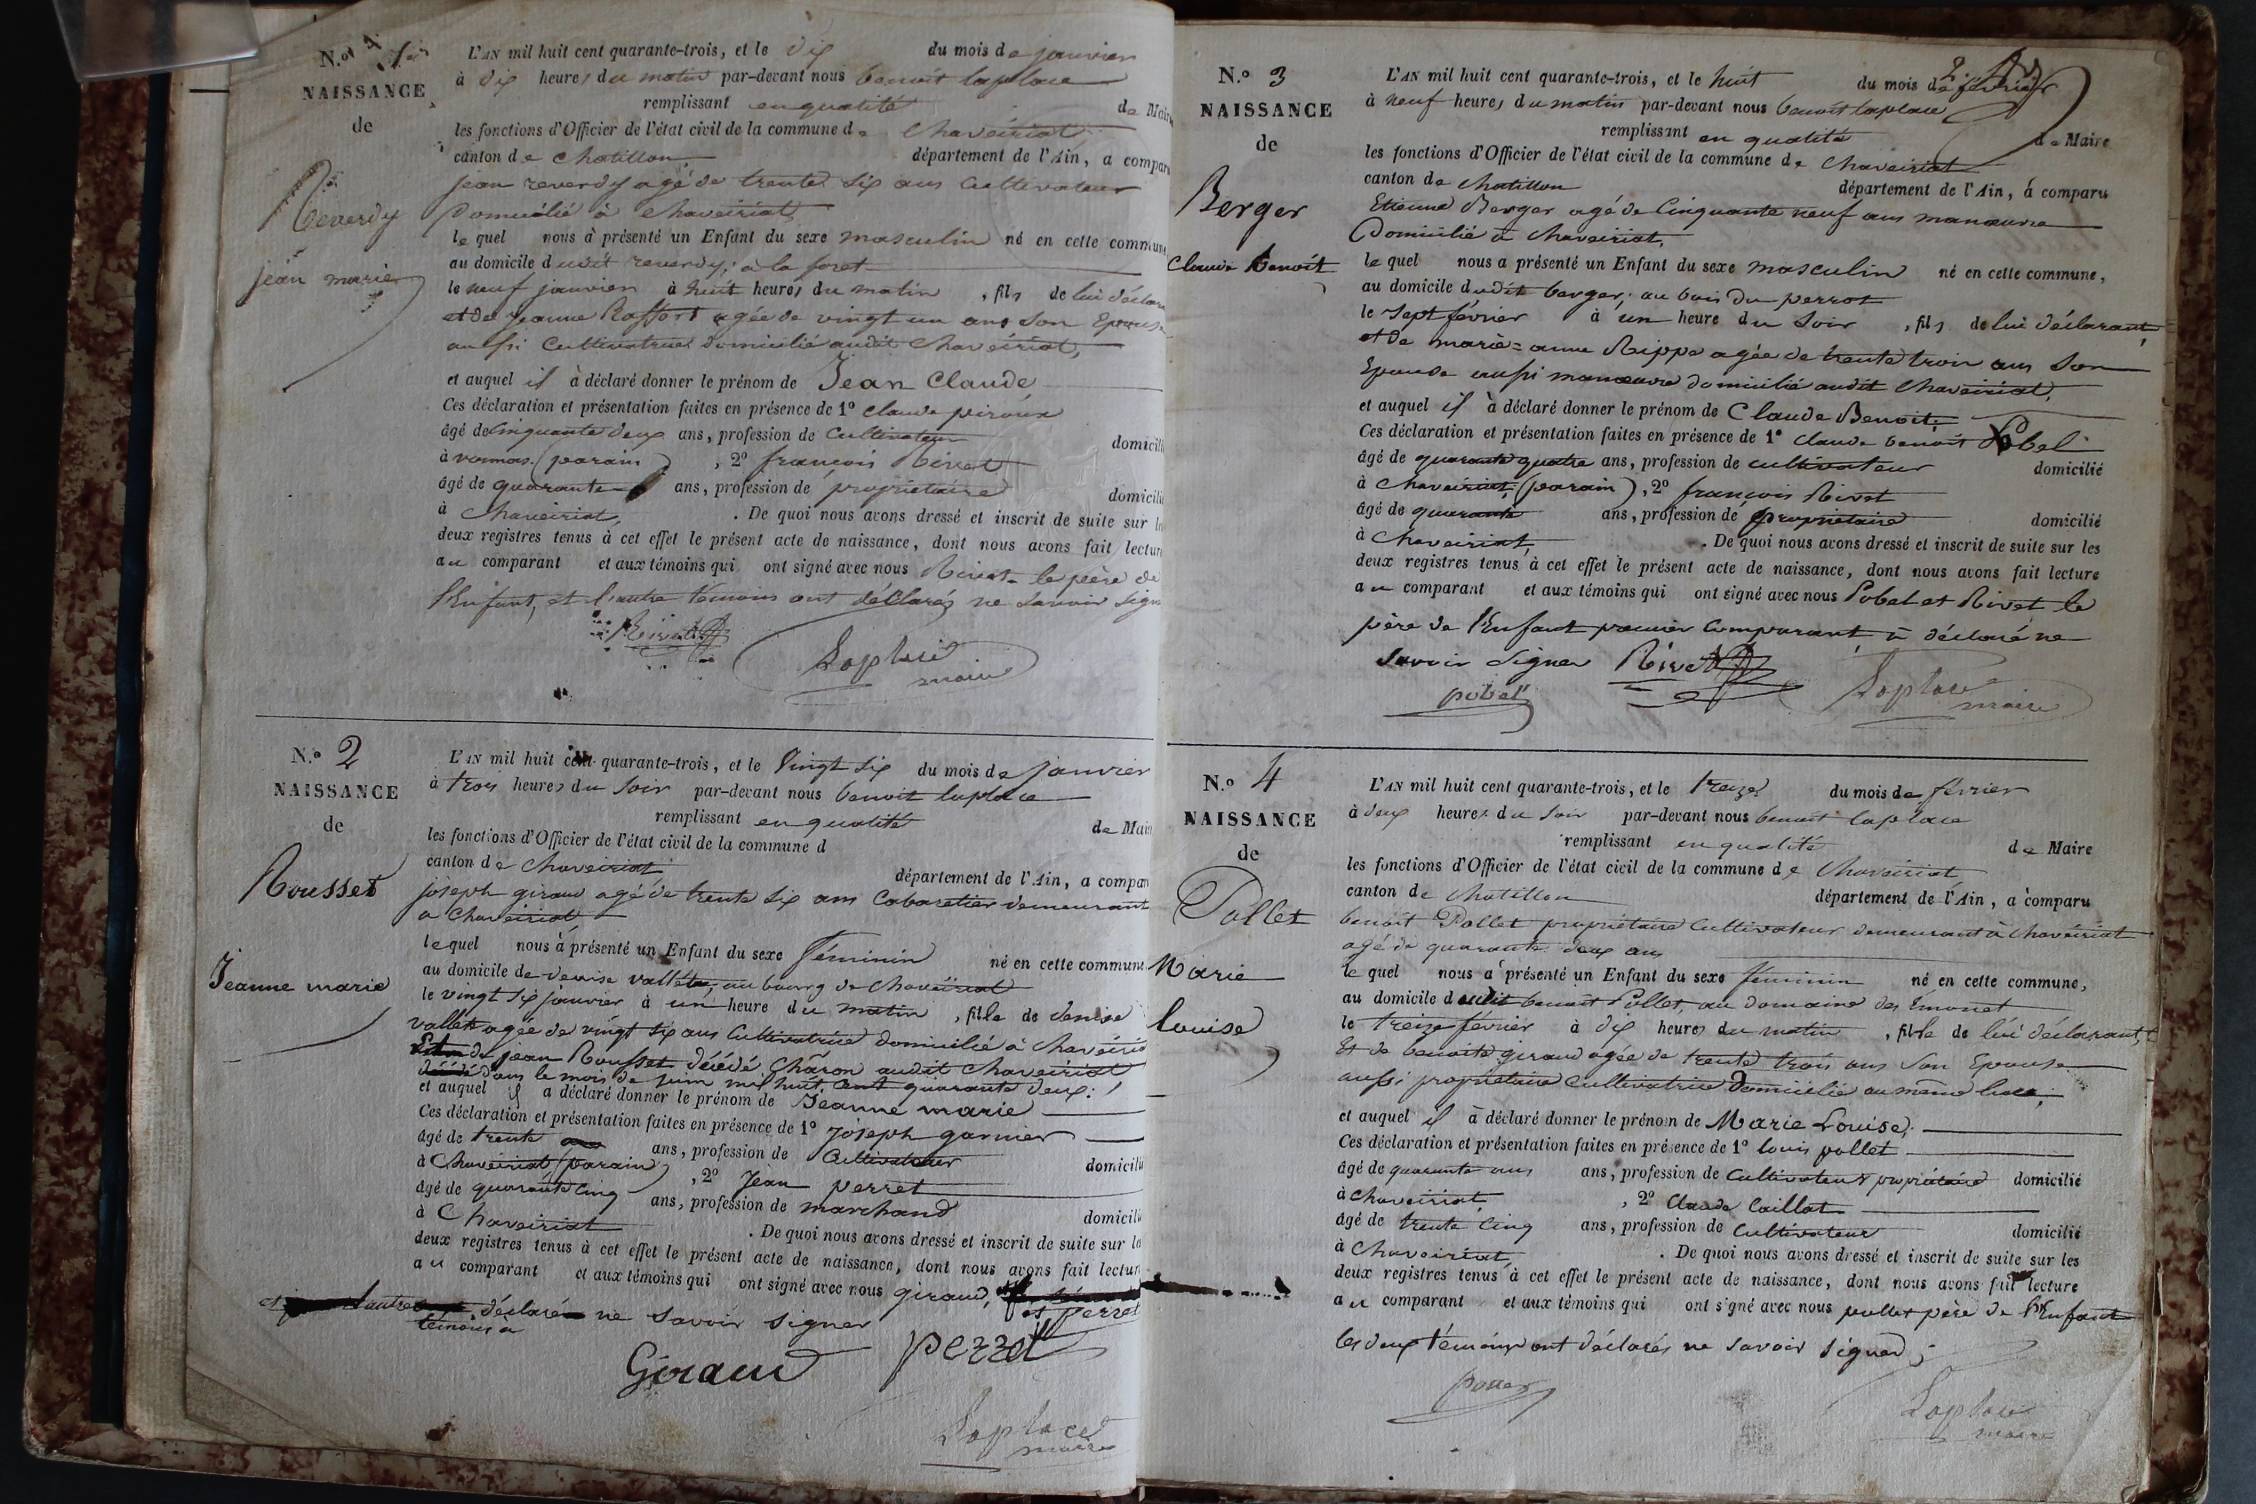 N.º 1er
NAISSANCE
de
Reverdy
jean marie
L'AN mil huit cent quarante-trois, et le dix du mois de janvier
à dix heures du matin par-devant nous benoit laplace
remplissant en qualité de Maire
les fonctions d'Officier de l'état civil de la commune de chaveiriat
canton de chatillon département de l'Ain, a comparu
jean reverdy agé de trente six ans cultivateur
Domicilié à chaveiriat
le quel nous à présenté un Enfant du sexe masculin né en cette commune
au domicile dudit reverdy; à la foret
le neuf janvier à huit heures du matin, fils de lui déclara
et de jeanne Raffort agée de vingt un ans son Epouse
aussi cultivatrice domicilié audit chaveiriat,
et auquel il à déclaré donner le prénom de Jean Claude
Ces déclaration et présentation faites en présence de 1º claude piroux
âgé de cinquante deux ans, profession de cultivateur domicilié
à vonnas (parain), 2º françois Rivet
âgé de quarante ans, profession de propriétaire domicilié
à chaveiriat, . De quoi nous avons dressé et inscrit de suite sur les
deux registres tenus à cet effet le présent acte de naissance, dont nous avons fait lecture
au comparant et aux témoins qui ont signé avec nous Rivet le père de
l'Enfant, et l'autre témoin ont déclarés ne savoir signer
Rivet
Laplace
maire
N.º 2
NAISSANCE
de
Rousset
Jeanne marie
L'AN mil huit cent quarante-trois, et le vingt six du mois de janvier
à trois heures du soir par-devant nous benoit laplace
remplissant en qualité de Maire
les fonctions d'Officier de l'état civil de la commune d
canton de chaveiriat département de l'Ain, a comparu
joseph giraud agé de trente six ans cabaretier demeurant
a chaveiriat
lequel nous à présenté un Enfant du sexe féminin né en cette commune
au domicile de denise vallet, au bourg de chaveiriat
le vingt six janvier à un heure du matin, fille de denise
vallet agée de vingt six ans cultivatrice domicilié à chaveiriat
de jean Rousset décédé charon audit chaveiriat
dans le mois de juin mil huit cent quarante deux:
et auquel il a déclaré donner le prénom de Jeanne marie
Ces déclaration et présentation faites en présence de 1º Joseph garnier
âgé de trente ans, profession de cultivateur domicilié
à chaveiriat (parain), 2º Jean perret
âgé de quarante cinq ans, profession de marchand domicilié
à chaveiriat . De quoi nous avons dressé et inscrit de suite sur les
deux registres tenus à cet effet le présent acte de naissance, dont nous avons fait lecture
au comparant et aux témoins qui ont signé avec nous giraud,
et perret
et l'autre déclaré ne savoir signer
témoin à
Giraud
perret
Laplace
maire
N.º 3
NAISSANCE
de
Berger
claude benoit
L'AN mil huit cent quarante-trois, et le huit du mois de février
à neuf heures du matin par-devant nous benoit laplace
remplissant en qualité de Maire
les fonctions d'Officier de l'état civil de la commune de chaveiriat
canton de chatillon département de l'Ain, à comparu
Etienne Berger agé de cinquante neuf ans manœuvre
Domicilié à chaveiriat,
le quel nous a présenté un Enfant du sexe masculin né en cette commune,
au domicile dudit berger; au bois du perrot
le sept février à un heure du soir, fils de lui déclarant,
et de marie=anne Rippe agée de trente trois ans son
Epouse aussi manœuvre domicilié audit chaveiriat,
et auquel il à déclaré donner le prénom de Claude Benoit;
Ces déclaration et présentation faites en présence de 1º claude benoit Pobel
âgé de quarante quatre ans, profession de cultivateur domicilié
à chaveiriat, (parain), 2º françois Rivet
âgé de quarante ans, profession de propriétaire domicilié
à chaveiriat, . De quoi nous avons dressé et inscrit de suite sur les
deux registres tenus à cet effet le présent acte de naissance, dont nous avons fait lecture
au comparant et aux témoins qui ont signé avec nous Pobel et Rivet le
père de l'Enfant premier comparant à déclaré ne
savoir signer Rivet
pobel
Laplace
maire
N.º 4
NAISSANCE
de
Pollet
Marie
Louise
L'AN mil huit cent quarante-trois, et le treize du mois de février
à deux heures du soir par-devant nous benoit laplace
remplissant en qualité de Maire
les fonctions d'Officier de l'état civil de la commune de chaveiriat
canton de chatillon département de l'Ain, a comparu
benoit Pollet propriétaire cultivateur demeurant à chaveiriat
agé de quarante deux ans
le quel nous a présenté un Enfant du sexe féminin né en cette commune,
au domicile dudit benoit Pollet, au domaine des
le treize février à dix heures du matin, fille de lui déclarant,
Et de benoite giraud agée de trente trois ans son Epouse
aussi propriétaire cultivatrice Domicilié au même lieu;
et auquel il à déclaré donner le prénom de Marie Louise;
Ces déclaration et présentation faites en présence de 1º louis pollet
âgé de quarante ans ans, profession de cultivateur propriétaire domicilié
à chaveiriat, , 2º Claude Caillat
âgé de trente cinq ans, profession de cultivateur domicilié
à chaveiriat, . De quoi nous avons dressé et inscrit de suite sur les
deux registres tenus à cet effet le présent acte de naissance, dont nous avons fait lecture
au comparant et aux témoins qui ont signé avec nous pollet père de l'Enfant
les deux témoins ont déclarés ne savoir signer;
Laplace
maire